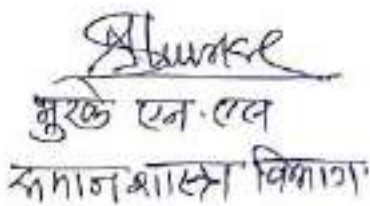 भुरके एन.एल
समाजशास्त्र विभाग